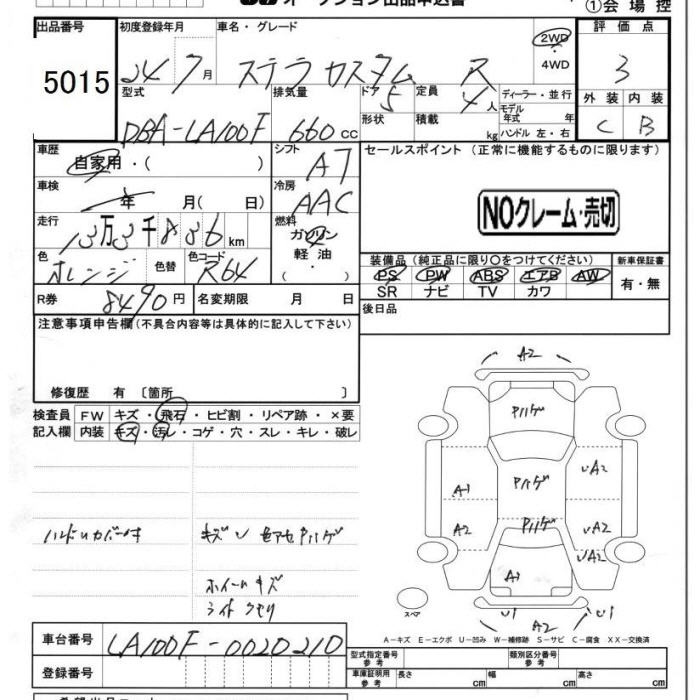 オークション出品申込書
①会 場 控
出品番号 初度登録年月 車名・グレード 評 価 点
5015 24 7月 ステラ カスタム R 2WD・4WD 3
型式 排気量 ドア 定員 ディーラー・並行 外 装 内 装
DBA-LA100F 660 cc 5 4人 モデル年式 年 C B
形状 積載 kg ハンドル 左・右
車歴 自家用・( ) シフト AT セールスポイント (正常に機能するものに限ります)
車検 年 月( 日) 冷房 AAC NOクレーム・売切
走行 13万3千836km 燃料 ガソリン
色 オレンジ 色替 色コード R64 軽 油・( )
装備品 (純正品に限り○をつけてください) 新車保証書
PS PW ABS エアB AW 有・無
SR ナビ TV カワ
R券 8490円 名変期限 月 日 後日品
注意事項申告欄(不具合内容等は具体的に記入して下さい)
修復歴 有 〔箇所 〕
検査員 FW キズ・飛石・ヒビ割・リペア跡・×要
記入欄 内装 キズ・汚レ・コゲ・穴・スレ・キレ・破レ
A2
パハゲ
パハゲ UA2
A1
パハゲ
A2 UA2
UA2
A1
U1 U1
ハンドルカバー付 キズ U 色アセ パハゲ
ホイールキズ
ライト クモリ
スペア
A-キズ E-エクボ U-凹み W-補修跡 S-サビ C-腐食 XX-交換済
車台番号 LA100F-0020210
登録番号
型式指定番号 参 考 類別区分番号 参 考
車庫証明用 参 考 長さ cm 幅 cm 高さ cm